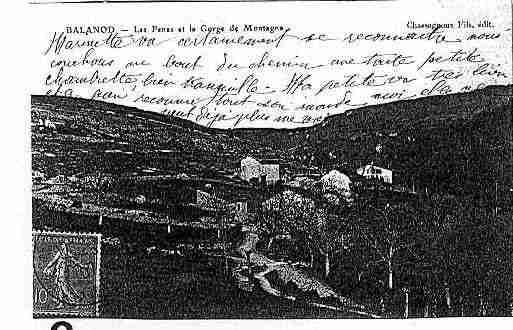 BALANOD. — Les Fanes et la Gorge de Montagna
Chassagneux Fils, édit.
Marinette va certainement se reconnaitre nous
couchons au bout du chemin une toute petite
chambrette bien tranquille. Ma petite va très bien
reconnu tout son monde moi elle
veut déjà plus me
10